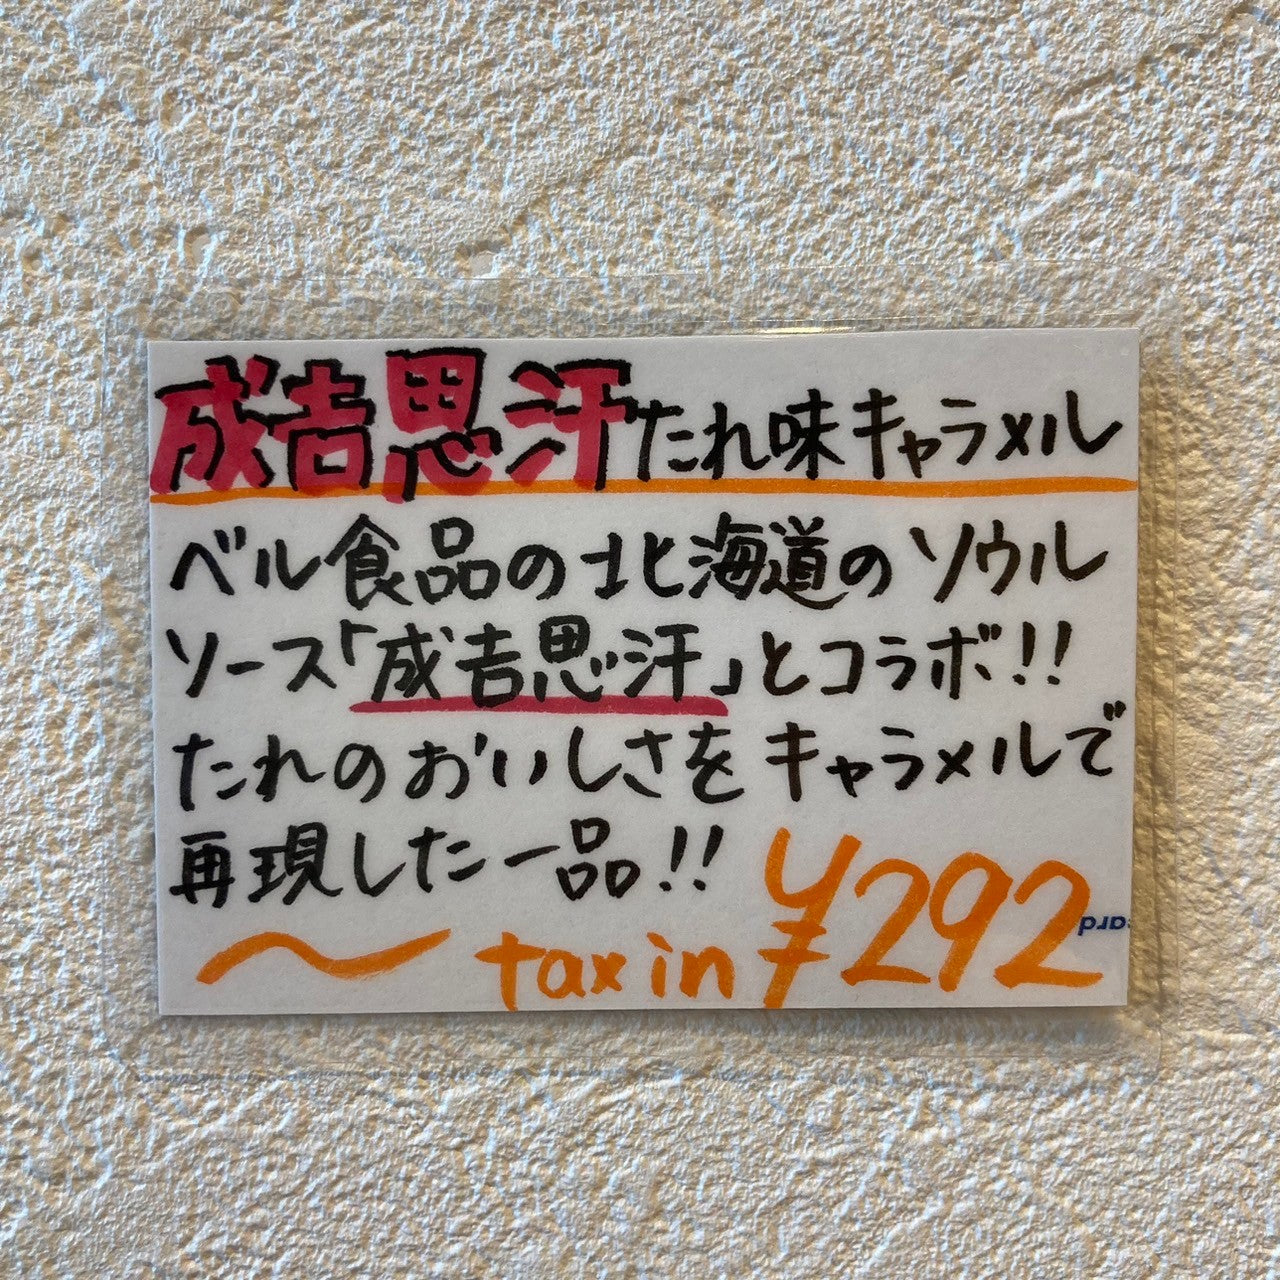 成吉思汗たれ味キャラメル
ベル食品の北海道のソウル
ソース「成吉思汗」とコラボ!!
たれのおいしさをキャラメルで
再現した一品!!
〜 tax in ¥292